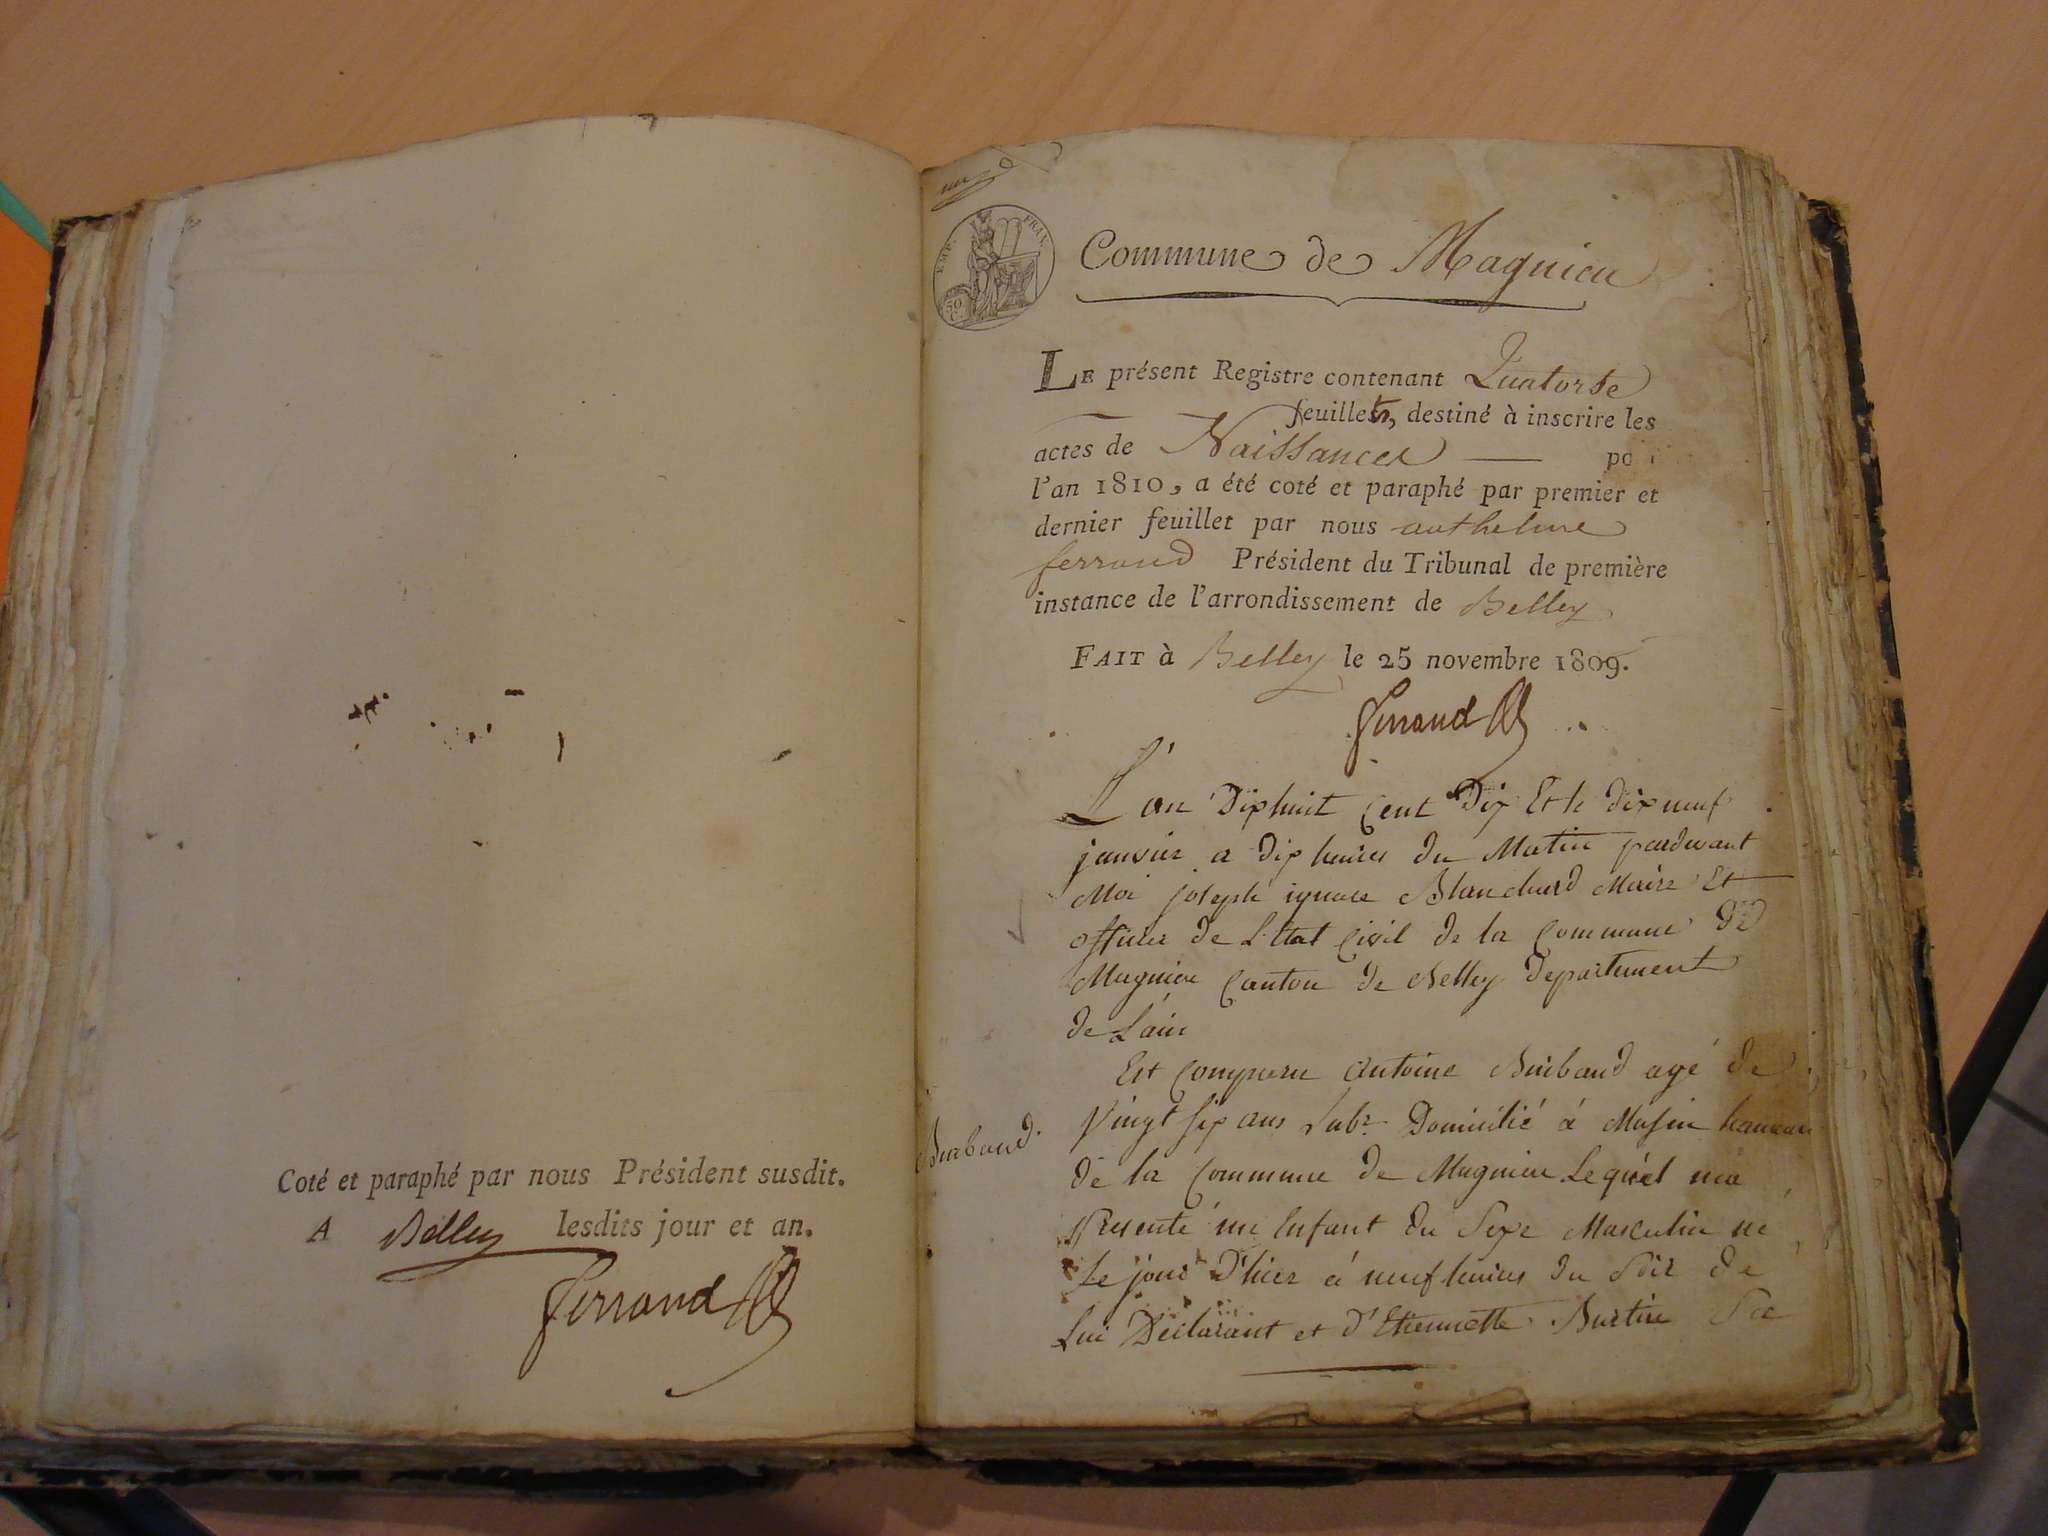 Coté et paraphé par nous Président susdit.
A Belley lesdits jour et an.
Ferrand
EMP. FRAN.
50
C.
Commune de Magnieu
LE présent Registre contenant Quatorse
feuillets, destiné à inscrire les
actes de Naissances — po
l'an 1810, a été coté et paraphé par premier et
dernier feuillet par nous anthelme
ferrand Président du Tribunal de première
instance de l'arrondissement de Belley
FAIT à Belley le 25 novembre 1809.
Ferrand
L'an Dixhuit Cent Dix Et le dix neuf
janvier a dix heures du Matin pardevant
Moi joseph ignace Blanchard Maire Et
officier de L'Etat Civil de la Commune De
Magnieu Canton de Belley Departement
de L'ain
Est Comparu Antoine Burbaud agé de
Vingt six ans Labr Domicilié à Masin hameau
de la Commune de Magnieu Lequel m'a
Presenté un Enfant du Sexe Masculin né
Le jour D'hier à neuf heures du Soir de
Lui Déclarant et d'Etiennette Burtin Sa
Burbaud.